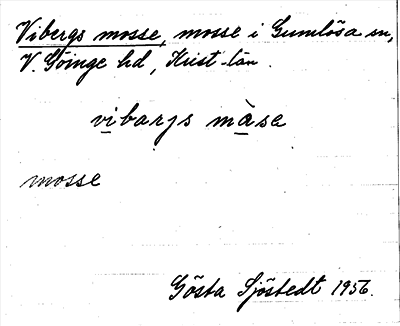 Vibergs mosse, mosse i Gumlösa sn,
V. Göinge hd, Krist. län.
vibarys måse
mosse
Gösta Sjöstedt 1956.